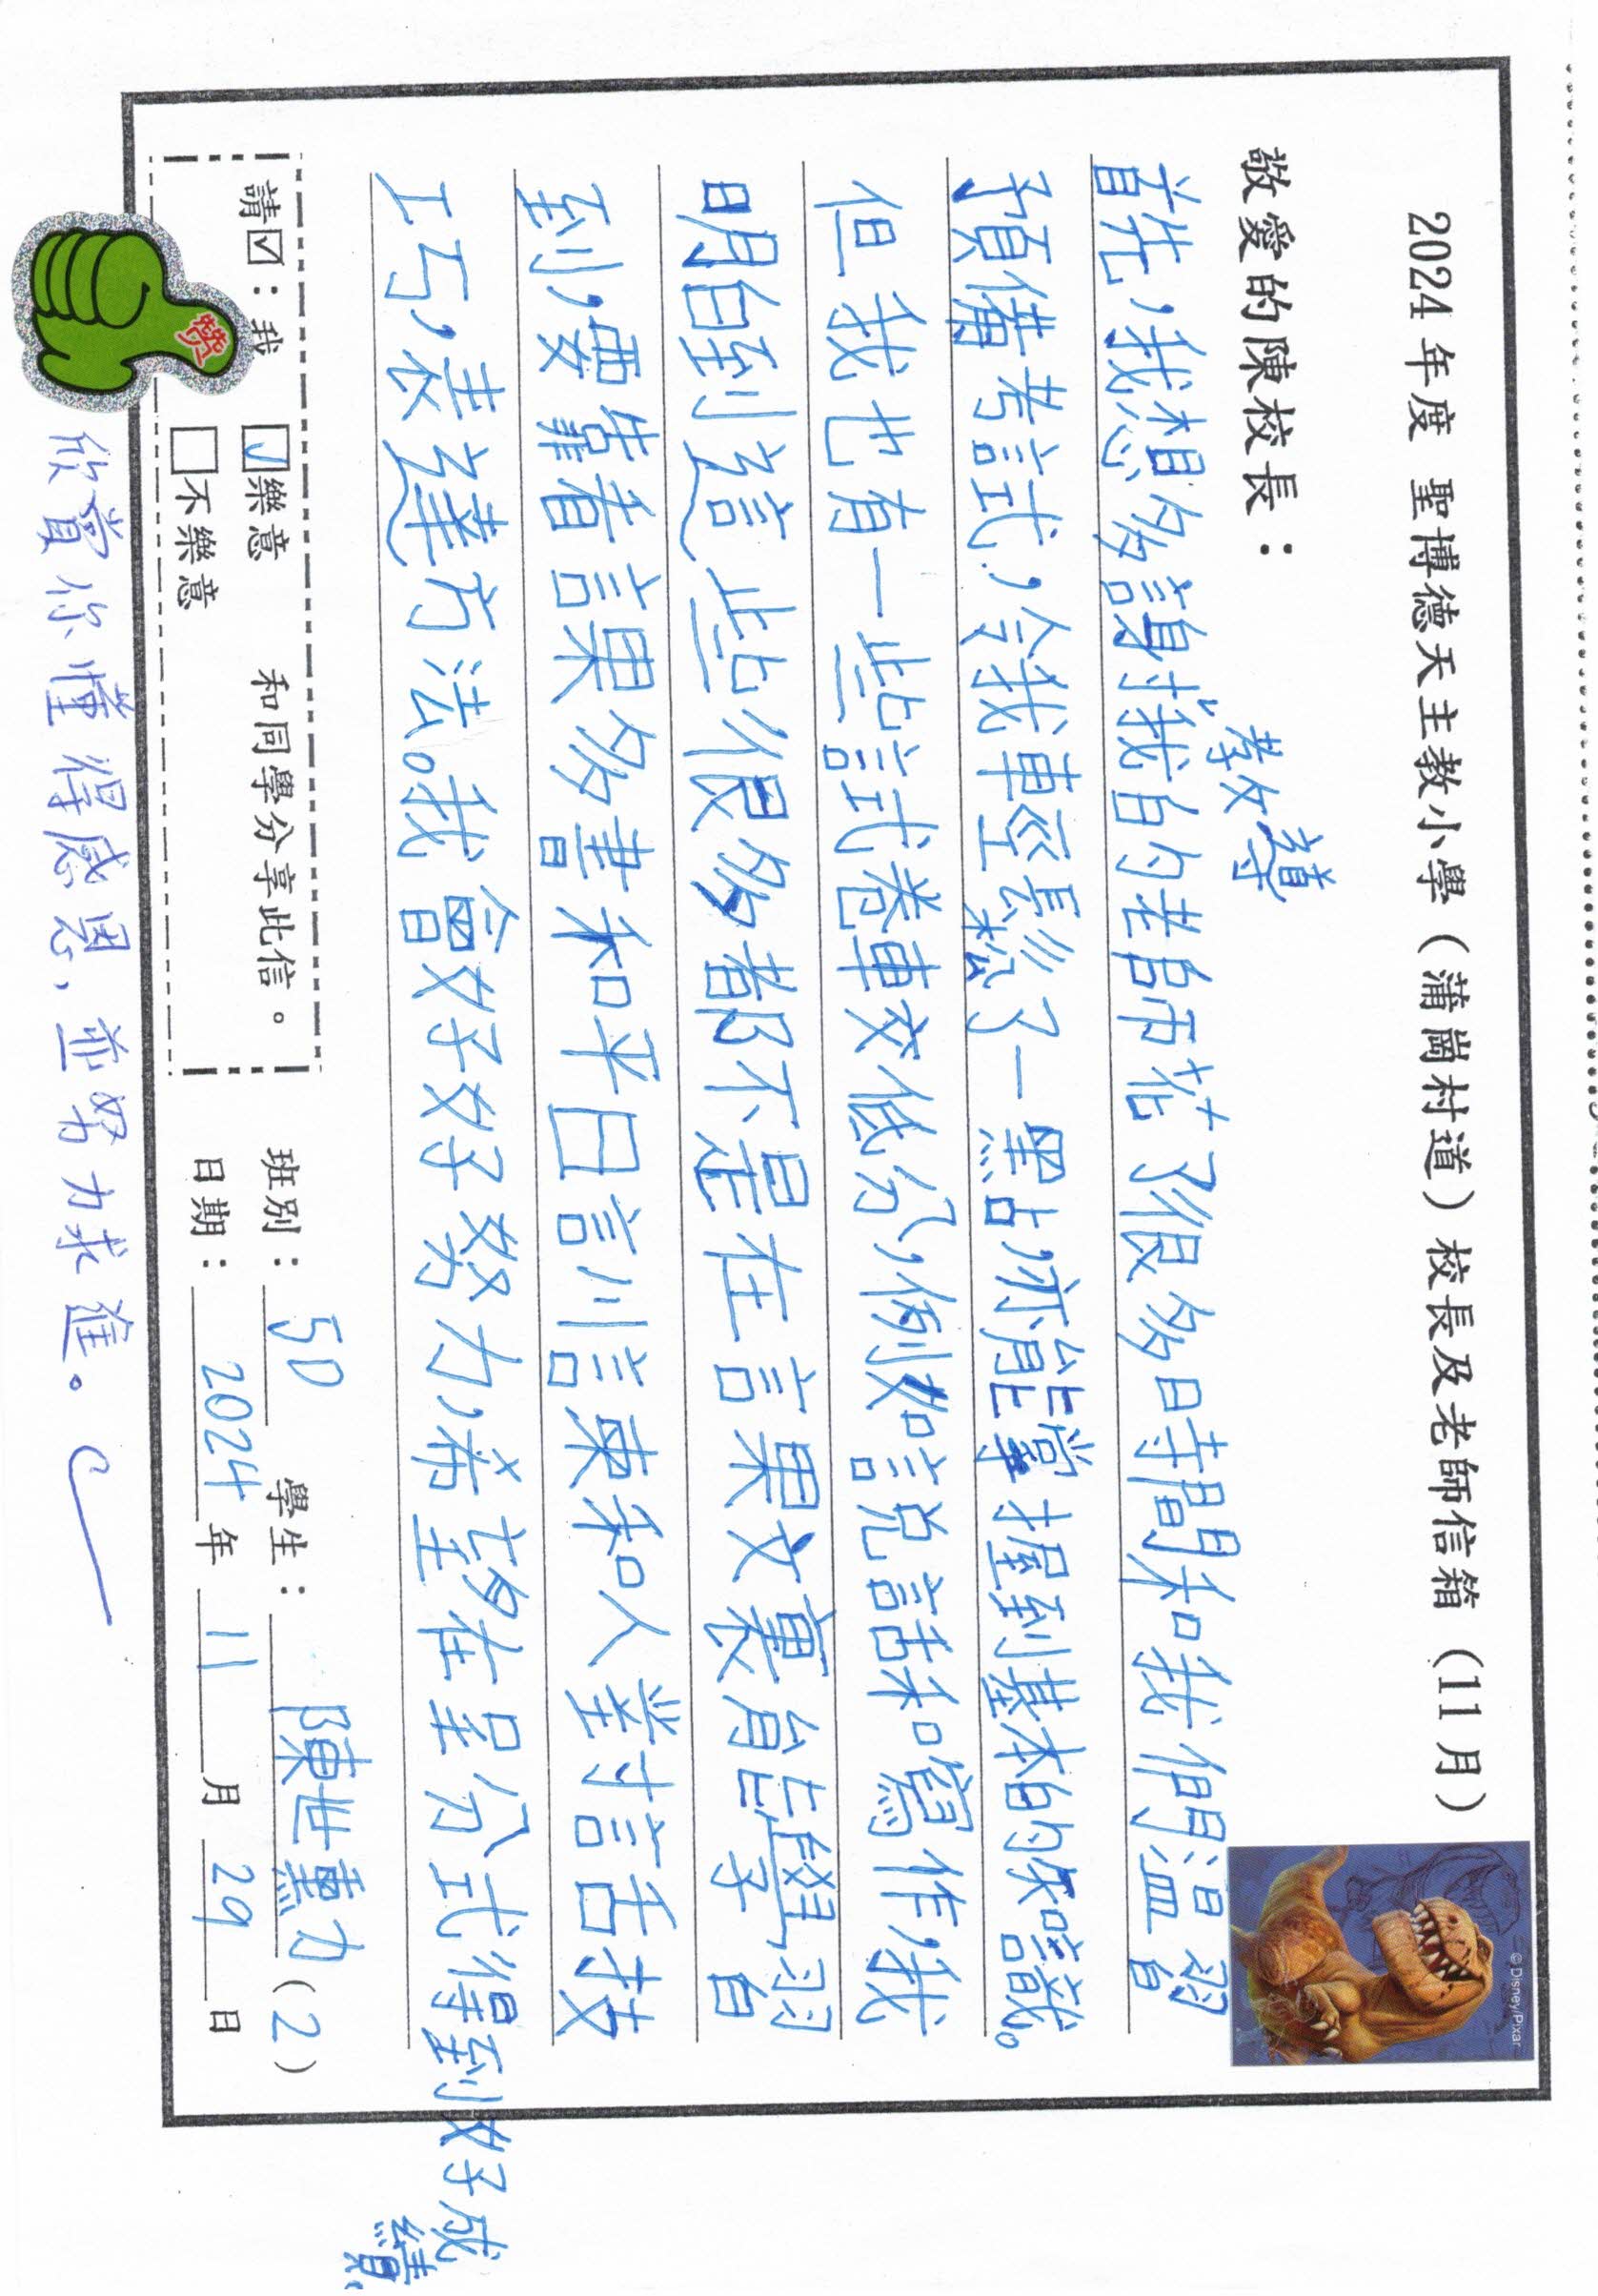 2024年度 聖博德天主教小學（蒲崗村道）校長及老師信箱（11月）
©Disney/Pixar
敬愛的陳校長：
教導
首先，我想多謝我的老師花了很多時間和我們温習
預備考試，令我輕鬆了一點，亦能掌握到基本的知識。
但我也有一些試卷較低分，例如説話和寫作，我
明白到這些很多都不是在課文裏能學習
到，要靠看課外書和平日訓練和人對話技
工巧，表達方法。我會好好努力，希望在呈分試得到好成
績。
請☑：我 ☑樂意 和同學分享此信。
□不樂意
班別：5D 學生：陳世勳(2)
日期：2024年11月29日
赞
欣賞你懂得感恩，並努力求進。